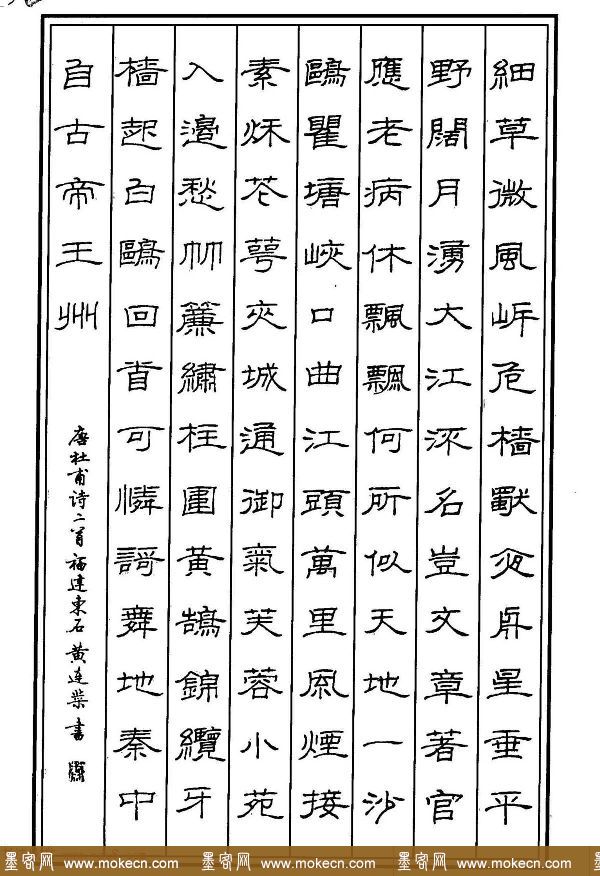 細草微風岸危檣獨夜舟星垂平
野闊月湧大江流名豈文章著官
應老病休飄飄何所似天地一沙
鷗瞿塘峽口曲江頭萬里風煙接
素秋花萼夾城通御氣芙蓉小苑
入邊愁簾繡柱圍黃鵠錦纜牙
檣起白鷗回首可憐謌舞地秦中
自古帝王州
唐杜甫诗二首福建東石黄连業書
墨客网 www.mokecn.com 墨客网 www.mokecn.com 墨客网 www.mokecn.com